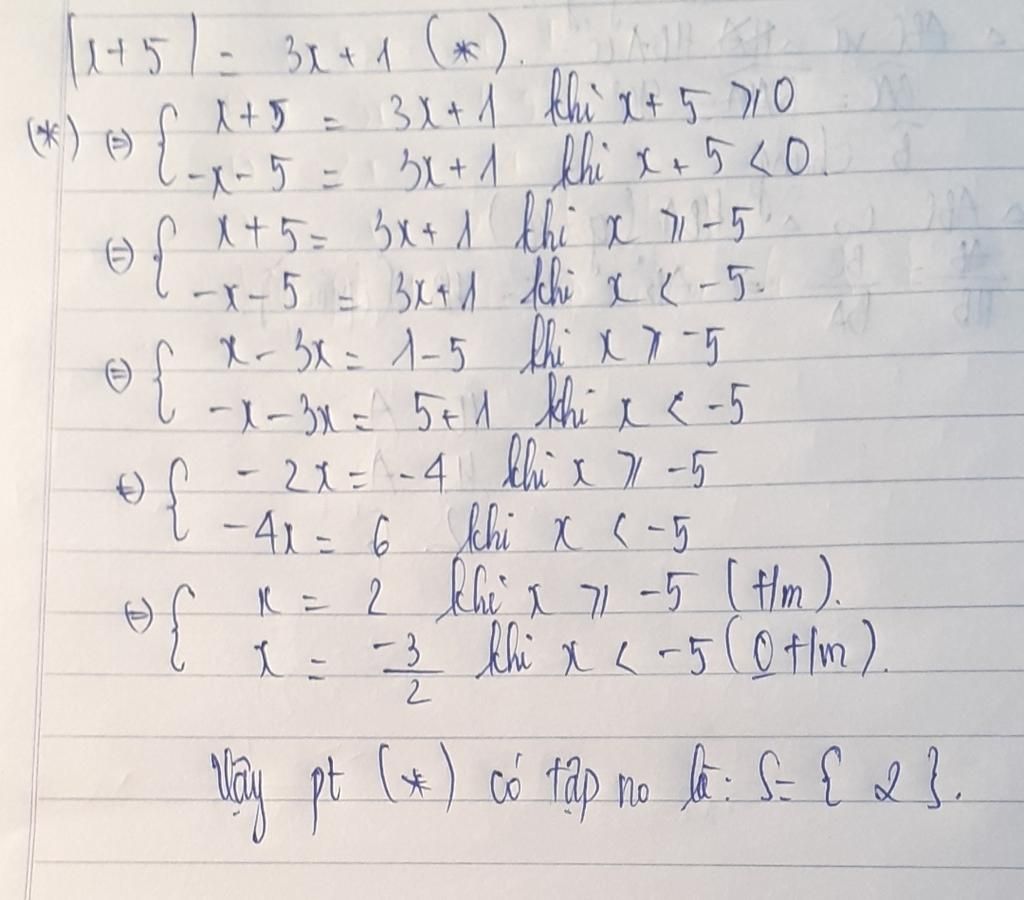 |x+5| = 3x+1 (*).
(*) ⇔ { x+5 = 3x+1 khi x+5 ⩾ 0
-x-5 = 3x+1 khi x+5 < 0.
⇔ { x+5 = 3x+1 khi x ⩾ -5
-x-5 = 3x+1 khi x < -5.
⇔ { x-3x = 1-5 khi x ⩾ -5
-x-3x = 5+1 khi x < -5
⇔ { -2x = -4 khi x ⩾ -5
-4x = 6 khi x < -5
⇔ { x = 2 khi x ⩾ -5 (t/m).
x = -3/2 khi x < -5 (0 t/m).
Vậy pt (*) có tập no là: S = { 2 }.